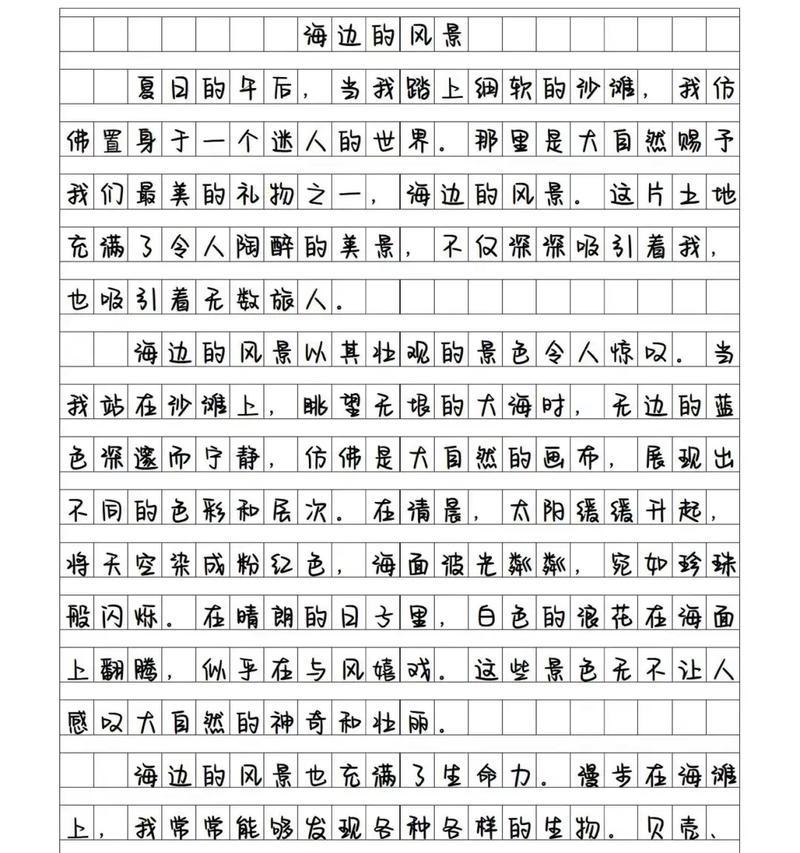 海边的风景
夏日的午后，当我踏上细软的沙滩，我仿
佛置身于一个迷人的世界。那里是大自然赐予
我们最美的礼物之一，海边的风景。这片土地
充满了令人陶醉的美景，不仅深深吸引着我，
也吸引着无数旅人。
海边的风景以其壮观的景色令人惊叹。当
我站在沙滩上，眺望无垠的大海时，无边的蓝
色深邃而宁静，仿佛是大自然的画布，展现出
不同的色彩和层次。在清晨，太阳缓缓升起，
将天空染成粉红色，海面波光粼粼，宛如珍珠
般闪烁。在晴朗的日子里，白色的浪花在海面
上翻腾，似乎在与风嬉戏。这些景色无不让人
感叹大自然的神奇和壮丽。
海边的风景也充满了生命力。漫步在海滩
上，我常常能够发现各种各样的生物。贝壳、